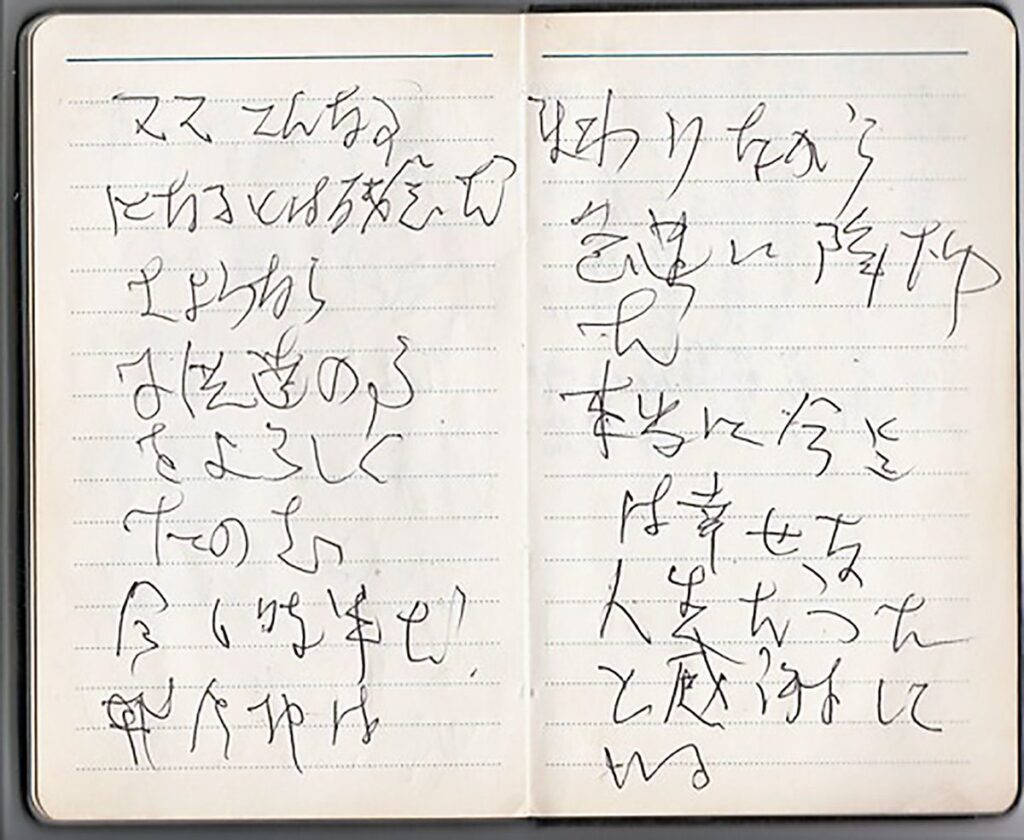 ママ こんな事
になるとは残念だ
さようなら
子供達の事
をよろしく
たのむ
今6時半だ
飛行機は
まわりながら
急速に降下中
だ
本当に今迄
は幸せな
人生だった
と感謝して
いる